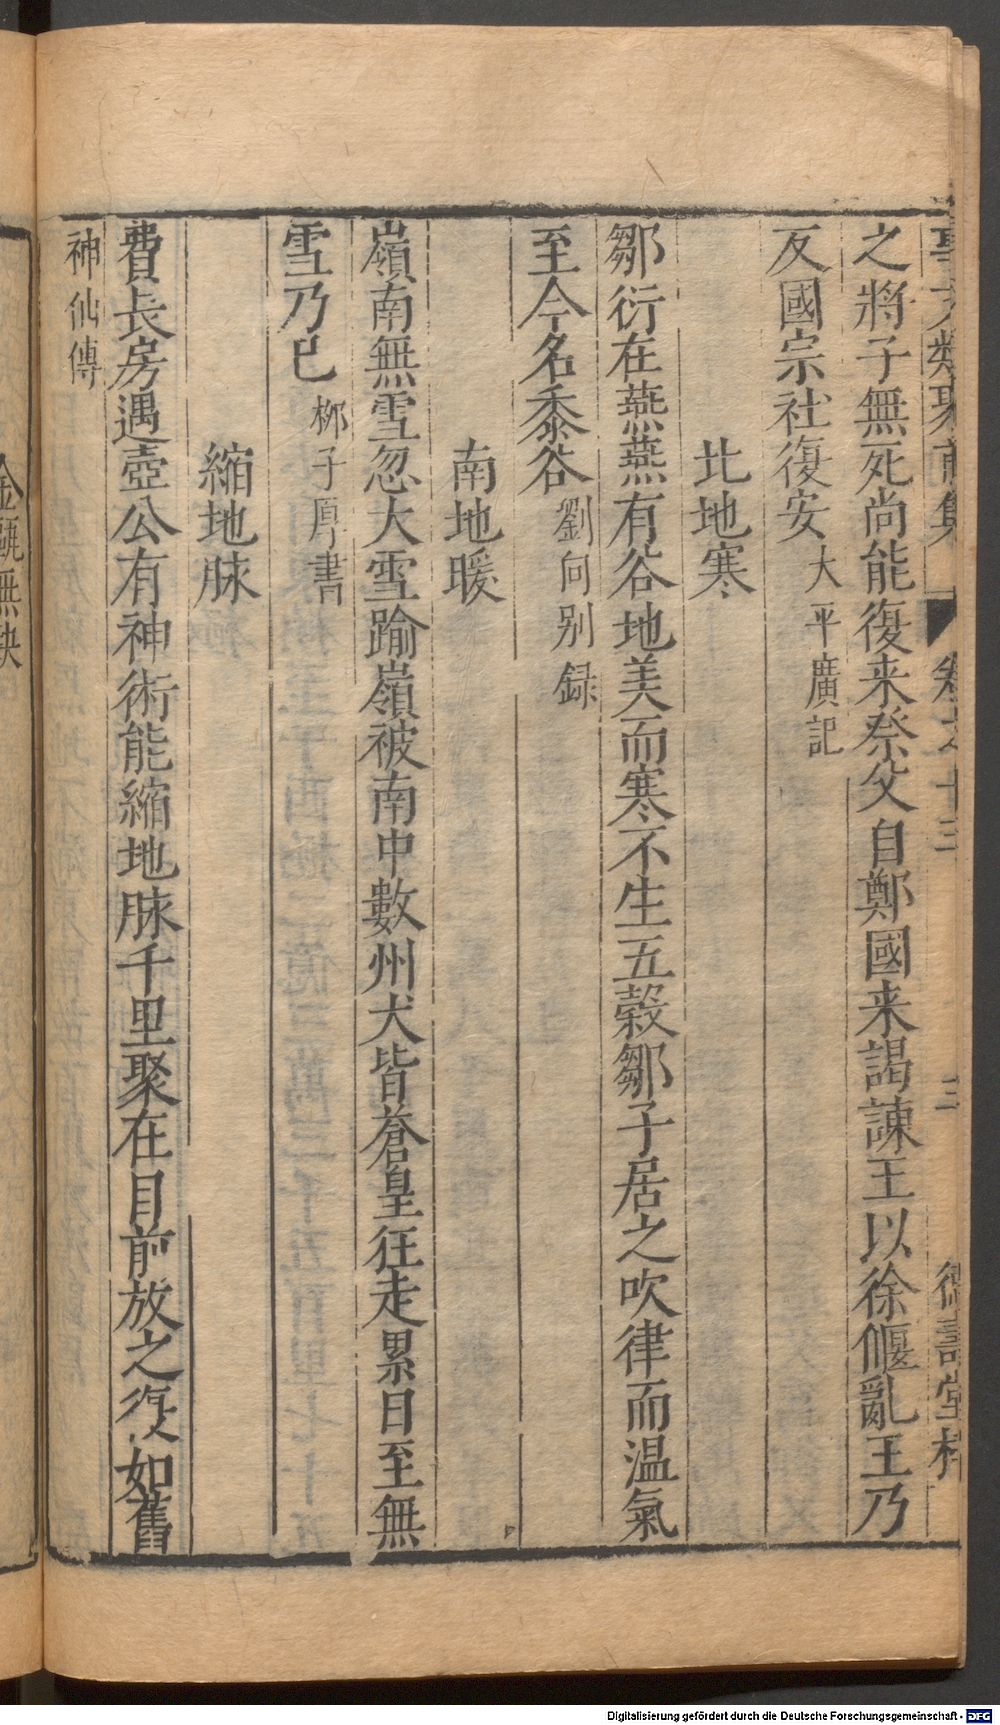 事文類聚前集 卷之十三 三 德壽堂梓
之將子無死尚能復来祭父自鄭國来謁諫王以徐偃亂王乃
反國宗社復安大平廣記
北地寒
鄒衍在燕燕有谷地美而寒不生五榖鄒子居之吹律而温氣
至今名黍谷劉向别録
南地暖
嶺南無雪忽大雪踰嶺被南中數州犬皆蒼皇狂走累日至無
雪乃已栁子厚書
縮地脉
費長房遇壺公有神術能縮地脉千里聚在目前放之復如舊
神仙傳
金甌無缺
Digitalisierung gefördert durch die Deutsche Forschungsgemeinschaft - DFG